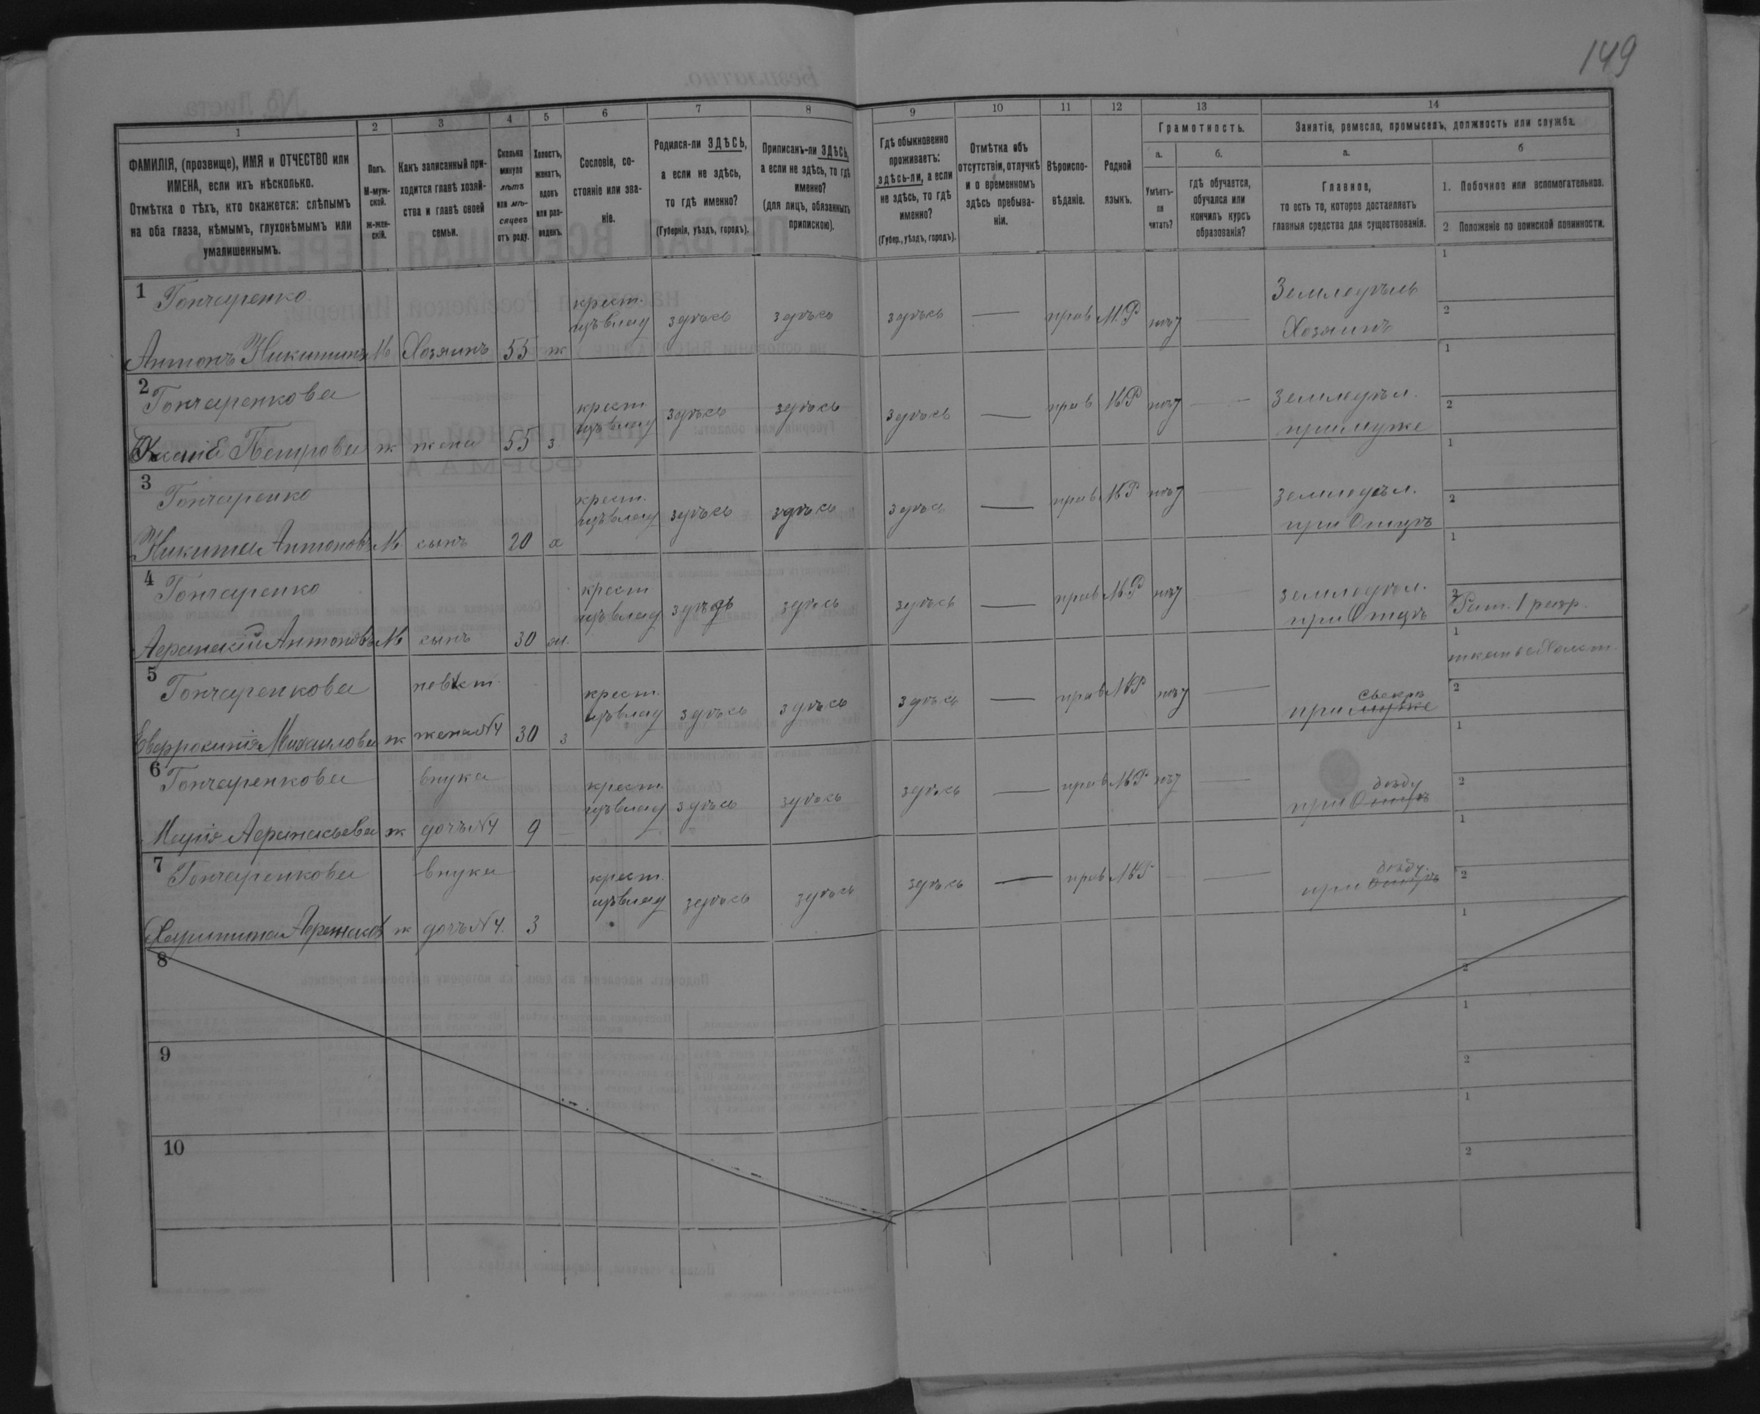 149
1 2 3 4 5 6 7 8 9 10 11 12 13 14
ФАМИЛІЯ, (прозвище), ИМЯ и ОТЧЕСТВО или
ИМЕНА, если ихъ нѣсколько.
Отмѣтка о тѣхъ, кто окажется: слѣпымъ
на оба глаза, нѣмымъ, глухонѣмымъ или
умалишеннымъ.
Полъ.
М-муж-
ской.
Ж-жен-
скій.
Какъ записанный при-
ходится главѣ хозяй-
ства и главѣ своей
семьи.
Сколько
минуло
лѣтъ
или мѣ-
сяцевъ
отъ роду.
Холостъ,
женатъ,
вдовъ
или раз-
веденъ.
Сословіе, со-
стояніе или зва-
ніе.
Родился-ли ЗДѢСЬ,
а если не здѣсь,
то гдѣ именно?
(Губернія, уѣздъ, городъ).
Приписанъ-ли ЗДѢСЬ,
а если не здѣсь, то гдѣ
именно?
(для лицъ, обязанныхъ
припискою).
Гдѣ обыкновенно
проживаетъ:
здѣсь-ли, а если
не здѣсь, то гдѣ
именно?
(Губер., уѣздъ, городъ).
Отмѣтка объ
отсутствіи, отлучкѣ
и о временномъ
здѣсь пребыва-
ніи.
Вѣроиспо-
вѣданіе.
Родной
языкъ.
Грамотность.
а.
Умѣетъ-
ли
читать?
б.
Гдѣ обучается,
обучался или
кончилъ курсъ
образованія?
Занятіе, ремесло, промыселъ, должность или служба.
а.
Главное,
то есть то, которое доставляетъ
главныя средства для существованія.
б
1. Побочное или вспомогательное.
2 Положеніе по воинской повинности.
1 Гончаренко
Антонъ Никитинъ М Хозяинъ 55 ж крест. здѣсь здѣсь здѣсь — прав М.Р нѣт — Земледѣль Хозяинъ 1 2
2 Гончаренкова
Петрова ж жена 55 з крест здѣсь здѣсь здѣсь — прав М.Р нѣт — земледѣл. при мужѣ 1 2
3 Гончаренко
Никита Антоновъ М сынъ 20 х крест. здѣсь здѣсь здѣсь — прав М.Р нѣт — земледѣл. при Отцѣ 1 2
4 Гончаренко
Антоновъ М сынъ 30 ж крест здѣсь здѣсь здѣсь — прав М.Р нѣт — земледѣл. при Отцѣ 1 2 Рат. 1 разр.
5 Гончаренкова невѣст.
Михаилова ж жена №4 30 з крест здѣсь здѣсь здѣсь — прав М.Р нѣт — при мужѣ свекрѣ 1 2
6 Гончаренкова внука
Марія ж дочь №4 9 крест здѣсь здѣсь здѣсь — прав М.Р нѣт — при Отцѣ дѣду 1 2
7 Гончаренкова внука
ж дочь №4. 3 крест здѣсь здѣсь здѣсь — прав М.Р — при Отцѣ дѣду. 1 2
8 1 2
9 1 2
10 1 2